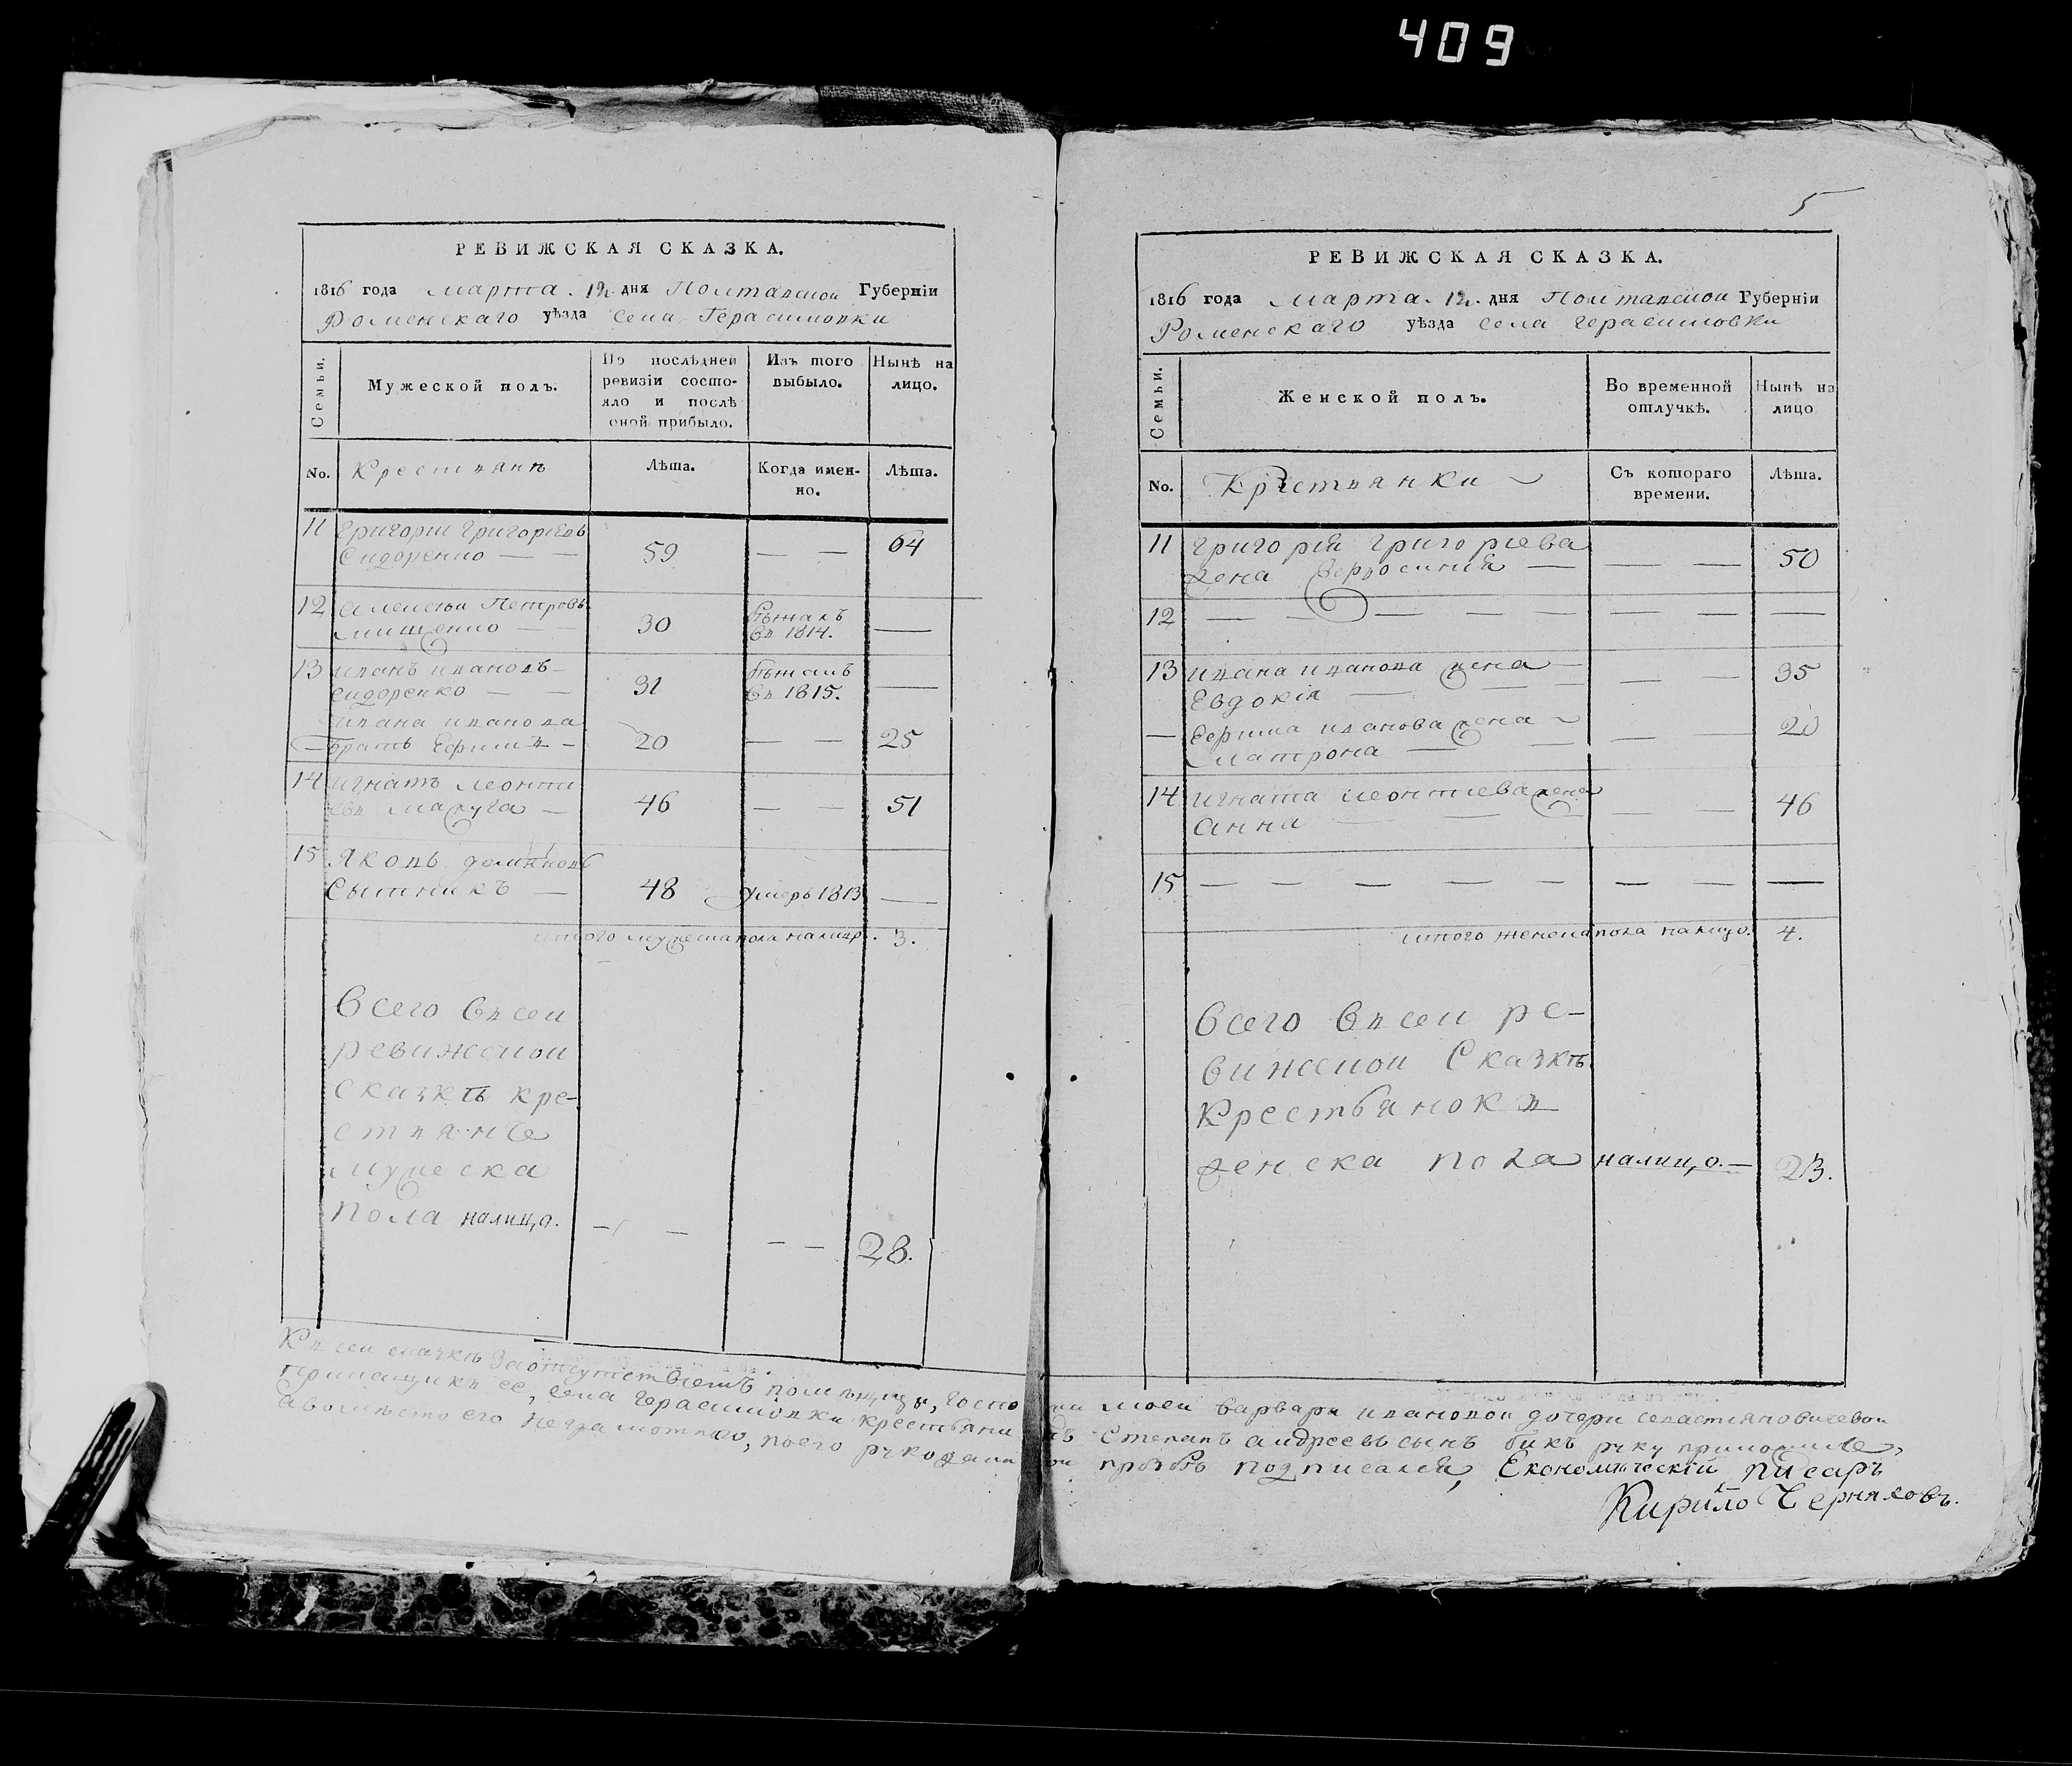 409
РЕВИЖСКАЯ СКАЗКА.
1816 года марта 12 дня Полтавской Губерніи
Роменскаго уѣзда села Герасимовки
Семьи.
Мужеской полъ.
Въ послѣдней ревизіи состо-
яло и послѣ
оной прибыло.
Изъ того
выбыло.
Нынѣ на
лицо.
No.
Крестьянъ
Лѣта.
Когда имен-
но.
Лѣта.
11 Григорій Григорьевъ
Сидоренко — — 59 — — 64
12 Алексѣй Петровъ
Мищенко — — 30 бѣжалъ
въ 1814. —
13 Иванъ Ивановъ —
Сидоренко — — 31 бѣжалъ
въ 1815. —
Ивана Иванова
братъ Ефимъ — 20 — — 25
14 Игнатъ Леонти
евъ — 46 — — 51
15 Яковъ
Сытникъ — 48 умеръ 1813 —
итого мужеска пола налицо. 3.
Всего въ сей
ревижской
сказкѣ кре-
стьянъ
мужеска
пола налицо. — — — — 28.
5
РЕВИЖСКАЯ СКАЗКА.
1816 года Марта 12 дня Полтавской Губерніи
Роменскаго уѣзда села Герасимовки
Семьи.
Женской полъ.
Во временной
отлучкѣ.
Нынѣ на
лицо
No.
Крестьянки
Съ котораго
времени.
Лѣта.
11 Григорія Григорьева
жена — — — 50
12 — — — — — — — —
13 Ивана Иванова жена —
Евдокія — — — — — 35
— Ефима Иванова жена —
Матрона — — — — 20
14 Игната Леонтіева жена
Анна — — — — — 46
15 — — — — — — — —
итого женска пола налицо. 4.
Всего въ сей ре-
вижской Сказкѣ
Крестьянокъ
женска пола налицо. — 23.
Къ сей сказкѣ за отсутствіемъ помѣщицы, госпожи моей Варвары Ивановой дочери Севастіяновичевой
Прикащикъ ее, села Герасимовки крестьянинъ Степанъ Андреевъ сынъ Бикъ руку приложилъ,
а вомѣсто его неграмотнаго, по его рукоданной прозбѣ подписался, Економическій писаръ
Кирило Черняховъ.